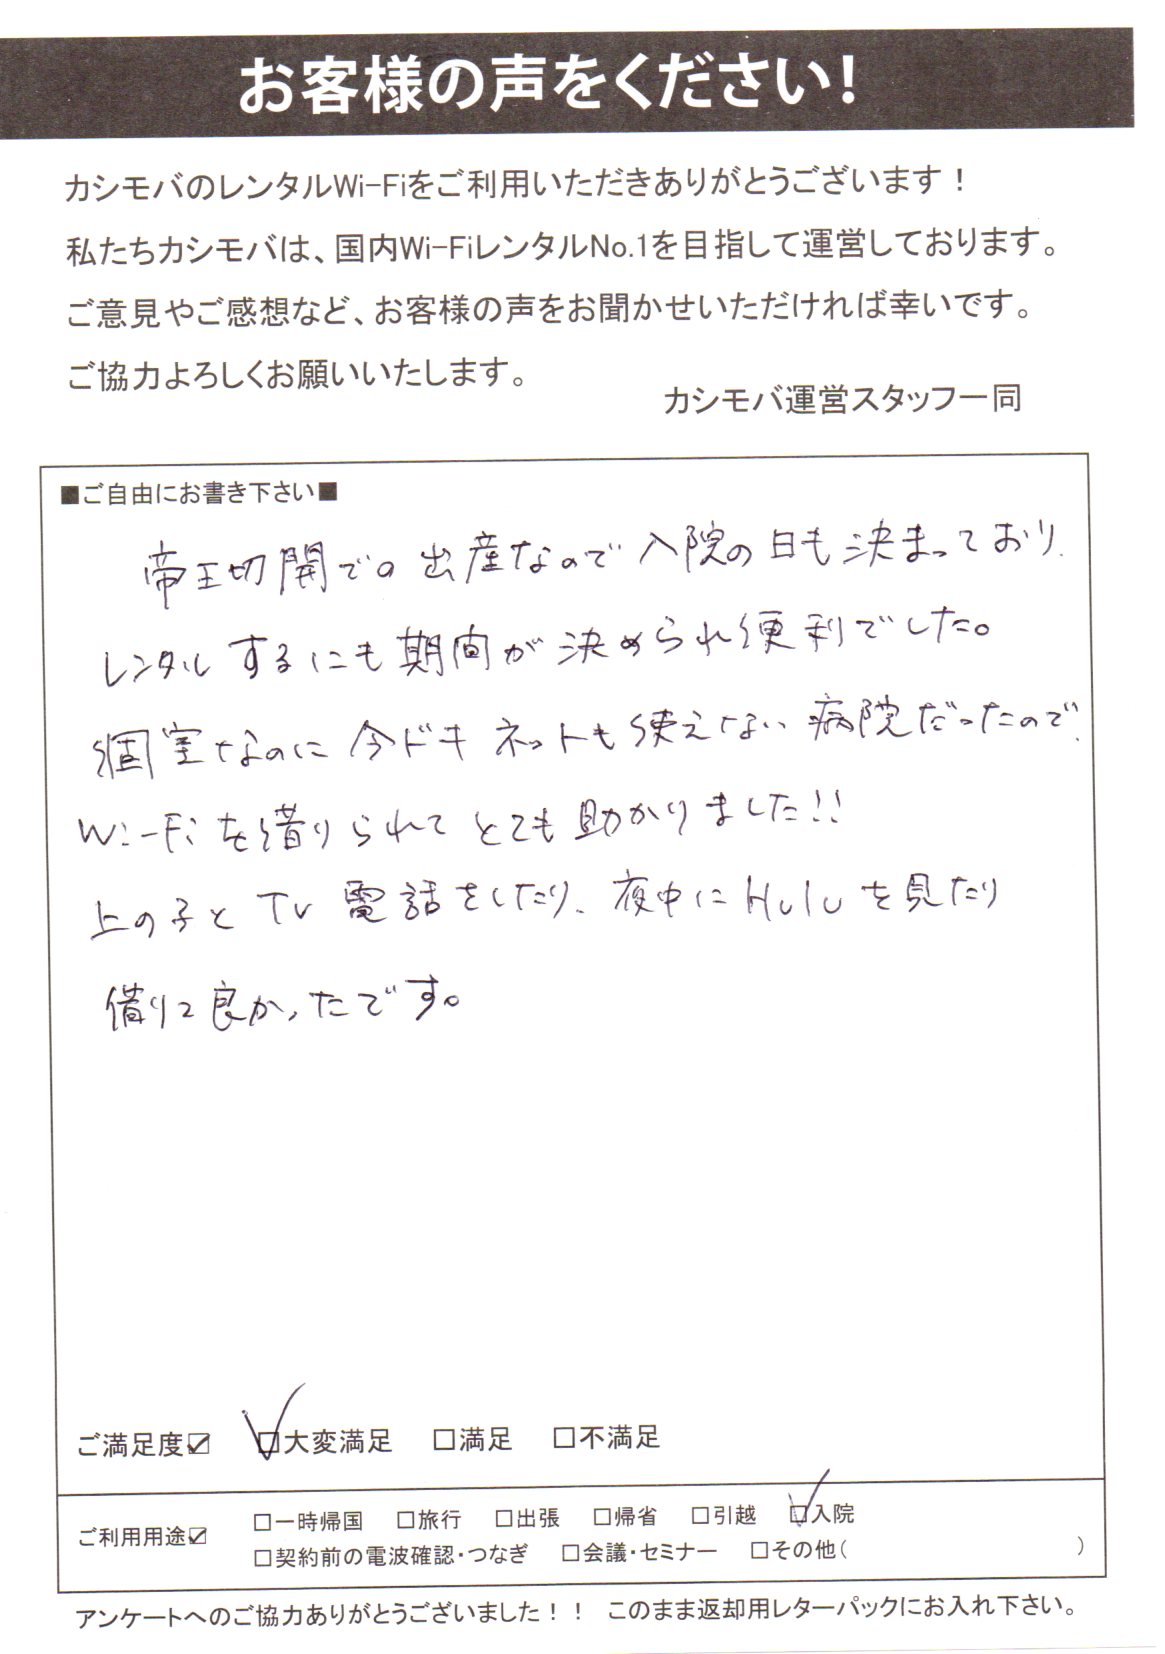 お客様の声をください!
カシモバのレンタルWi-Fiをご利用いただきありがとうございます！
私たちカシモバは、国内Wi-FiレンタルNo.1を目指して運営しております。
ご意見やご感想など、お客様の声をお聞かせいただければ幸いです。
ご協力よろしくお願いいたします。
カシモバ運営スタッフ一同
■ご自由にお書き下さい■
帝王切開での出産なので入院の日も決まっており、
レンタルするにも期間が決められ便利でした。
個室なのに今ドキネットも使えない病院だったので、
Wi-Fiを借りられてとても助かりました!!
上の子とTV電話をしたり、夜中にHuluを見たり
借りて良かったです。
ご満足度☑ ☑大変満足 □満足 □不満足
ご利用用途☑ □一時帰国 □旅行 □出張 □帰省 □引越 ☑入院
□契約前の電波確認・つなぎ □会議・セミナー □その他( )
アンケートへのご協力ありがとうございました！！ このまま返却用レターパックにお入れ下さい。